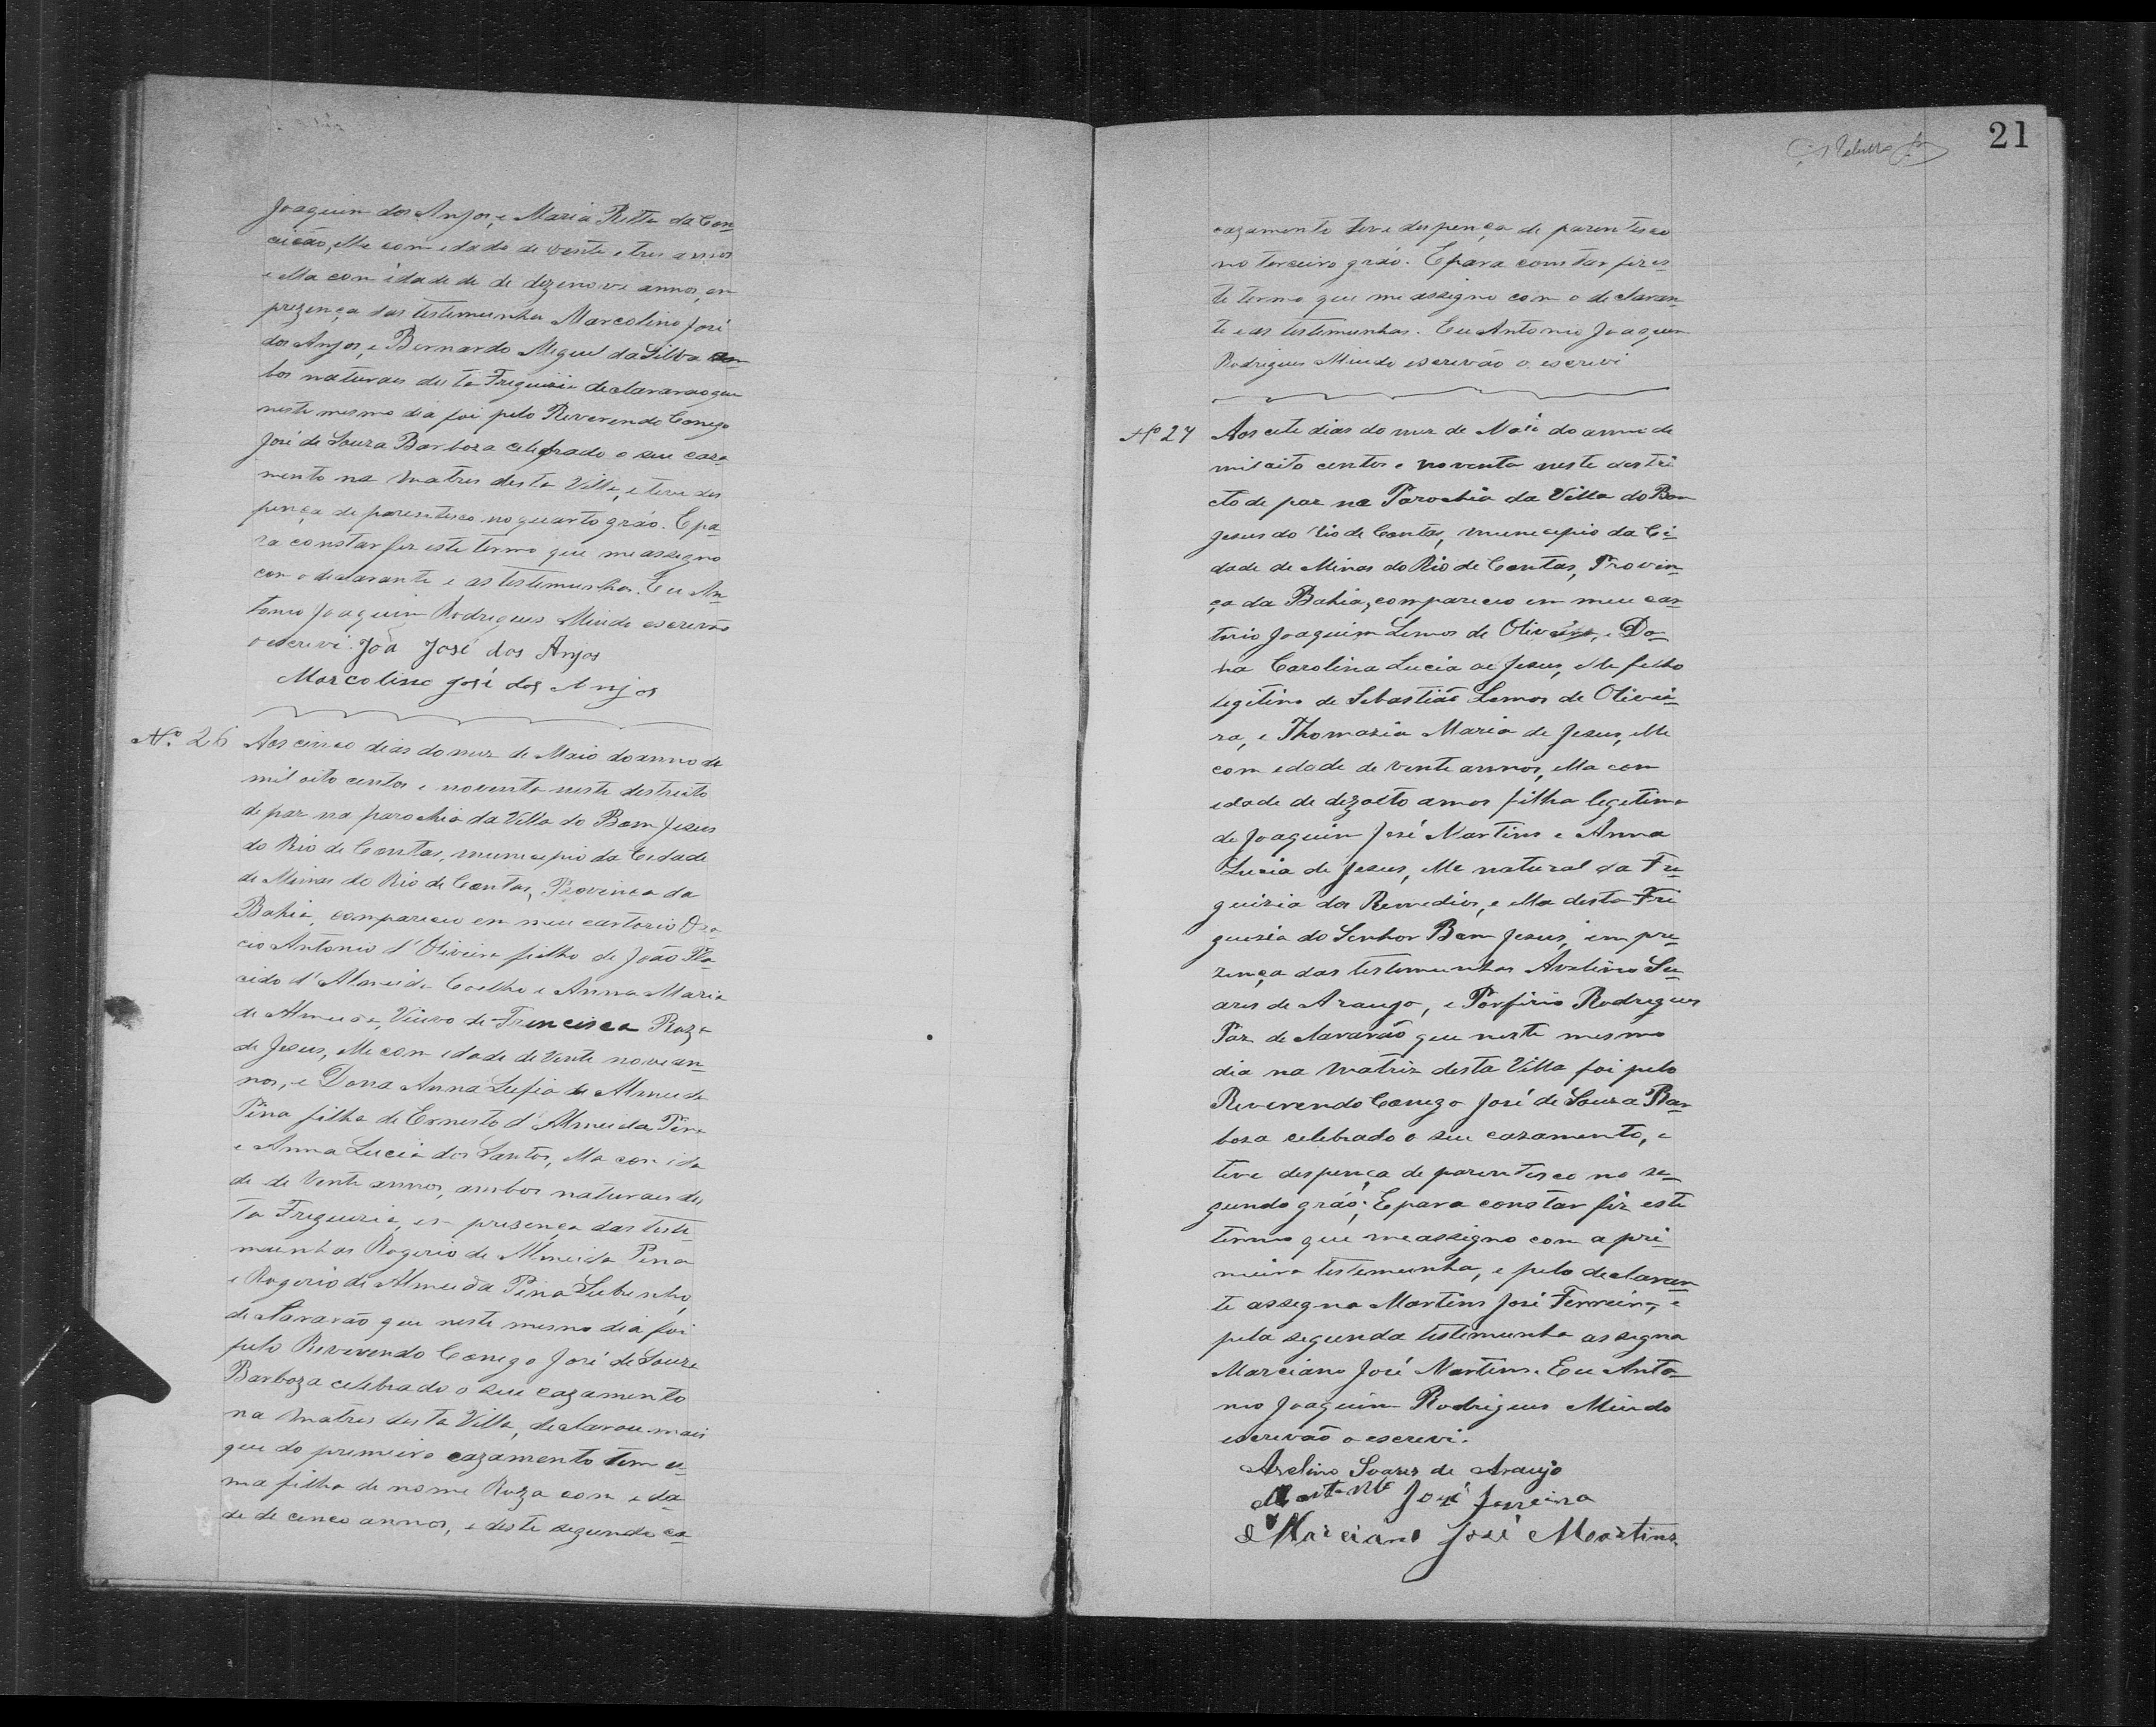 Joaquim dos Anjos, e Maria Ritta da Con-
ceicão, elle com edade de vente e tres annos
e ella com idade de de dezenove annos, em
prezença das testemunhas Marcolino José
dos Anjos, e Bernardo Meguel da Silva am-
bos naturaes desta Freguizia declararao que
neste mesmo dia foi pelo Reverendo Conego
José de Souza Barboza celebrado o seu caza
mento na Matris desta Villa, e teve des
pença de parentesco no quarto gráo. E pa-
ra constar fiz este termo que me assegno
com o declarante e as testemunhas. Eu An-
tonio Joaquim Rodrigues Miudo escrevão
o escrevi. Joã José dos Anjos
Marcolino José dos Anjos
Nº 26 Aos cinco dias do mez de Maio do anno de
mil oito centos e noventa neste destreito
de paz na parochia da Villa do Bom Jesus
do Rio de Contas, municepio da Cidade
de Minas do Rio de Contas, Provinca da
Bahia, compareceu em meu cartorio
cio Antonio d'Oliveira filho de João Pla-
cido d'Almeida Coelho e Anna Maria
de Almeida, Viuvo de Francisca Roza
de Jesus, elle com idade de Vente nove an-
nos, e Dona Anna de Almeida
Pina filha de Ernesto d'Almeida Pina
e Anna Lucia dos Santos, ella com ida
de de Vente annos, ambos naturaes des
ta Freguezia, em presença das teste
maunhas Rogerio de Almeida Pena
e Rogerio de Almeida Pina Subrinho,
declararão que neste mesmo dia foi
pelo Reverendo Conego José de Souza
Barboza celebrado o seu cazamento
na Matris desta Villa, declarou mais
que do premeiro cazamento tem u-
ma filha de nome Roza com eda-
de de cenco annos, e deste segundo ca-
21
cazamento teve despença de parentesco
no terceiro gráo. E para constar fiz es-
te termo que me assegno com o declaran-
te e as testemunhas. Eu Antonio Joaquim
Rodrigues Miudo escrevão o escrevi
Nº 27 Aos cete dias do mez de Maio do anno de
mil oito centos e noventa neste destri
cto de paz na Parochia da Villa do Bom
Jesus do Rio de Contas, municepio da Ci-
dade de Minas do Rio de Contas, Provin-
ça da Bahia, compareceo em meu car-
torio Joaquim Lemos de Oliveira, e Do-
na Carolina Lucia de Jesus, elle filho
legitimo de Sebastião Lemos de Olivei-
ra, e Thomazia Maria de Jesus, elle
com edade de vente annos, ella com
edade de dezoito annos filha legetima
de Joaquim José Martins e Anna
Lucia de Jesus, elle natural da Fre-
guizia dos Remedios, e ella desta Fre
guezia do Senhor Bom Jesus, em pre-
zença das testemunhas Avelino So-
ares de Araujo, e Porfirio Rodrigues
Paz declararão que neste mesmo
dia na Matriz desta Villa foi pelo
Reverendo Conego José de Souza Bar
boza celebrado o seu cazamento, e
teve despença de parentesco no se-
gundo gráo; E para constar fiz este
termo que me assigno com a pri-
meira testemunha, e pelo declaran-
te assegna Martins José Ferreira, e
pela segunda testemunha assegna
Marciano José Martins. Eu Anto-
nio Joaquim Rodrigues Miudo
escrevão o escrevi.
Avelino Soares de Araujo
José Ferreira
Marciano José Martins.